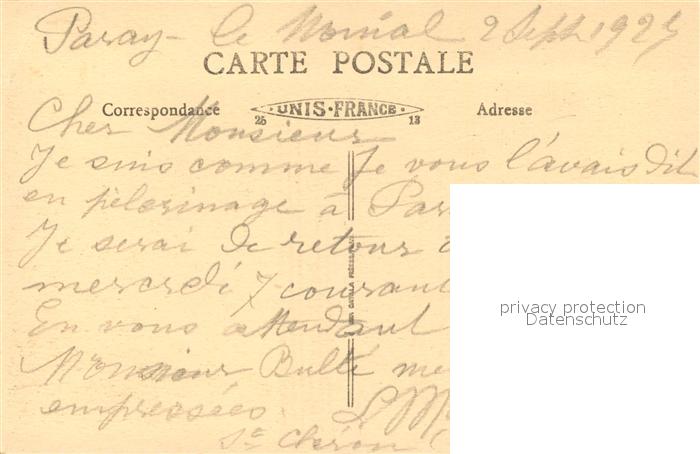 Paray-le Monial 2 Sept 1925
CARTE POSTALE
Correspondance UNIS-FRANCE Adresse
25 13
Cher Monsieur
Je suis comme Je vous l'avais dit
en pèlerinage à Par
Je serai de retour
mercredi 7 courant
En vous attendant
Monsieur Bullé me
empressées L. M
St Chéron
privacy protection
Datenschutz